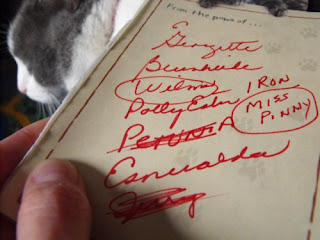 From the paws of...
E
Georgette
Brunhilde
Wilma IRON
Polly Ester MISS
PETUNIA PINNY
Esmeralda